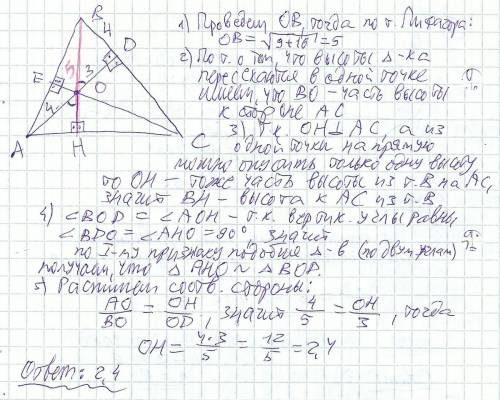 B
4
D
E
5
3
O
4
A
H
C
1) Проведем OB, тогда по т. Пифагора:
OB = √9+16 = 5
2) По т. о том, что высоты Δ-ка
пересекаются в одной точке
имеем, что BO – часть высоты
к стороне AC
3) т.к. OH⊥AC, а из
одной точки на прямую
можно опустить только одну высоту,
то OH – тоже часть высоты из т. B на AC,
значит BH – высота к AC из т. B
4) ∠BOD = ∠AOH – т.к. вертик. углы равны
∠BDO = ∠AHO = 90°, значит
по I-му признаку подобия Δ-в (по двум углам)
получаем, что Δ AHO ~ Δ BOD.
5) Распишем соотв. стороны:
AO/BO = OH/OD, значит 4/5 = OH/3, тогда
OH = 4·3/5 = 12/5 = 2,4
Ответ: 2,4